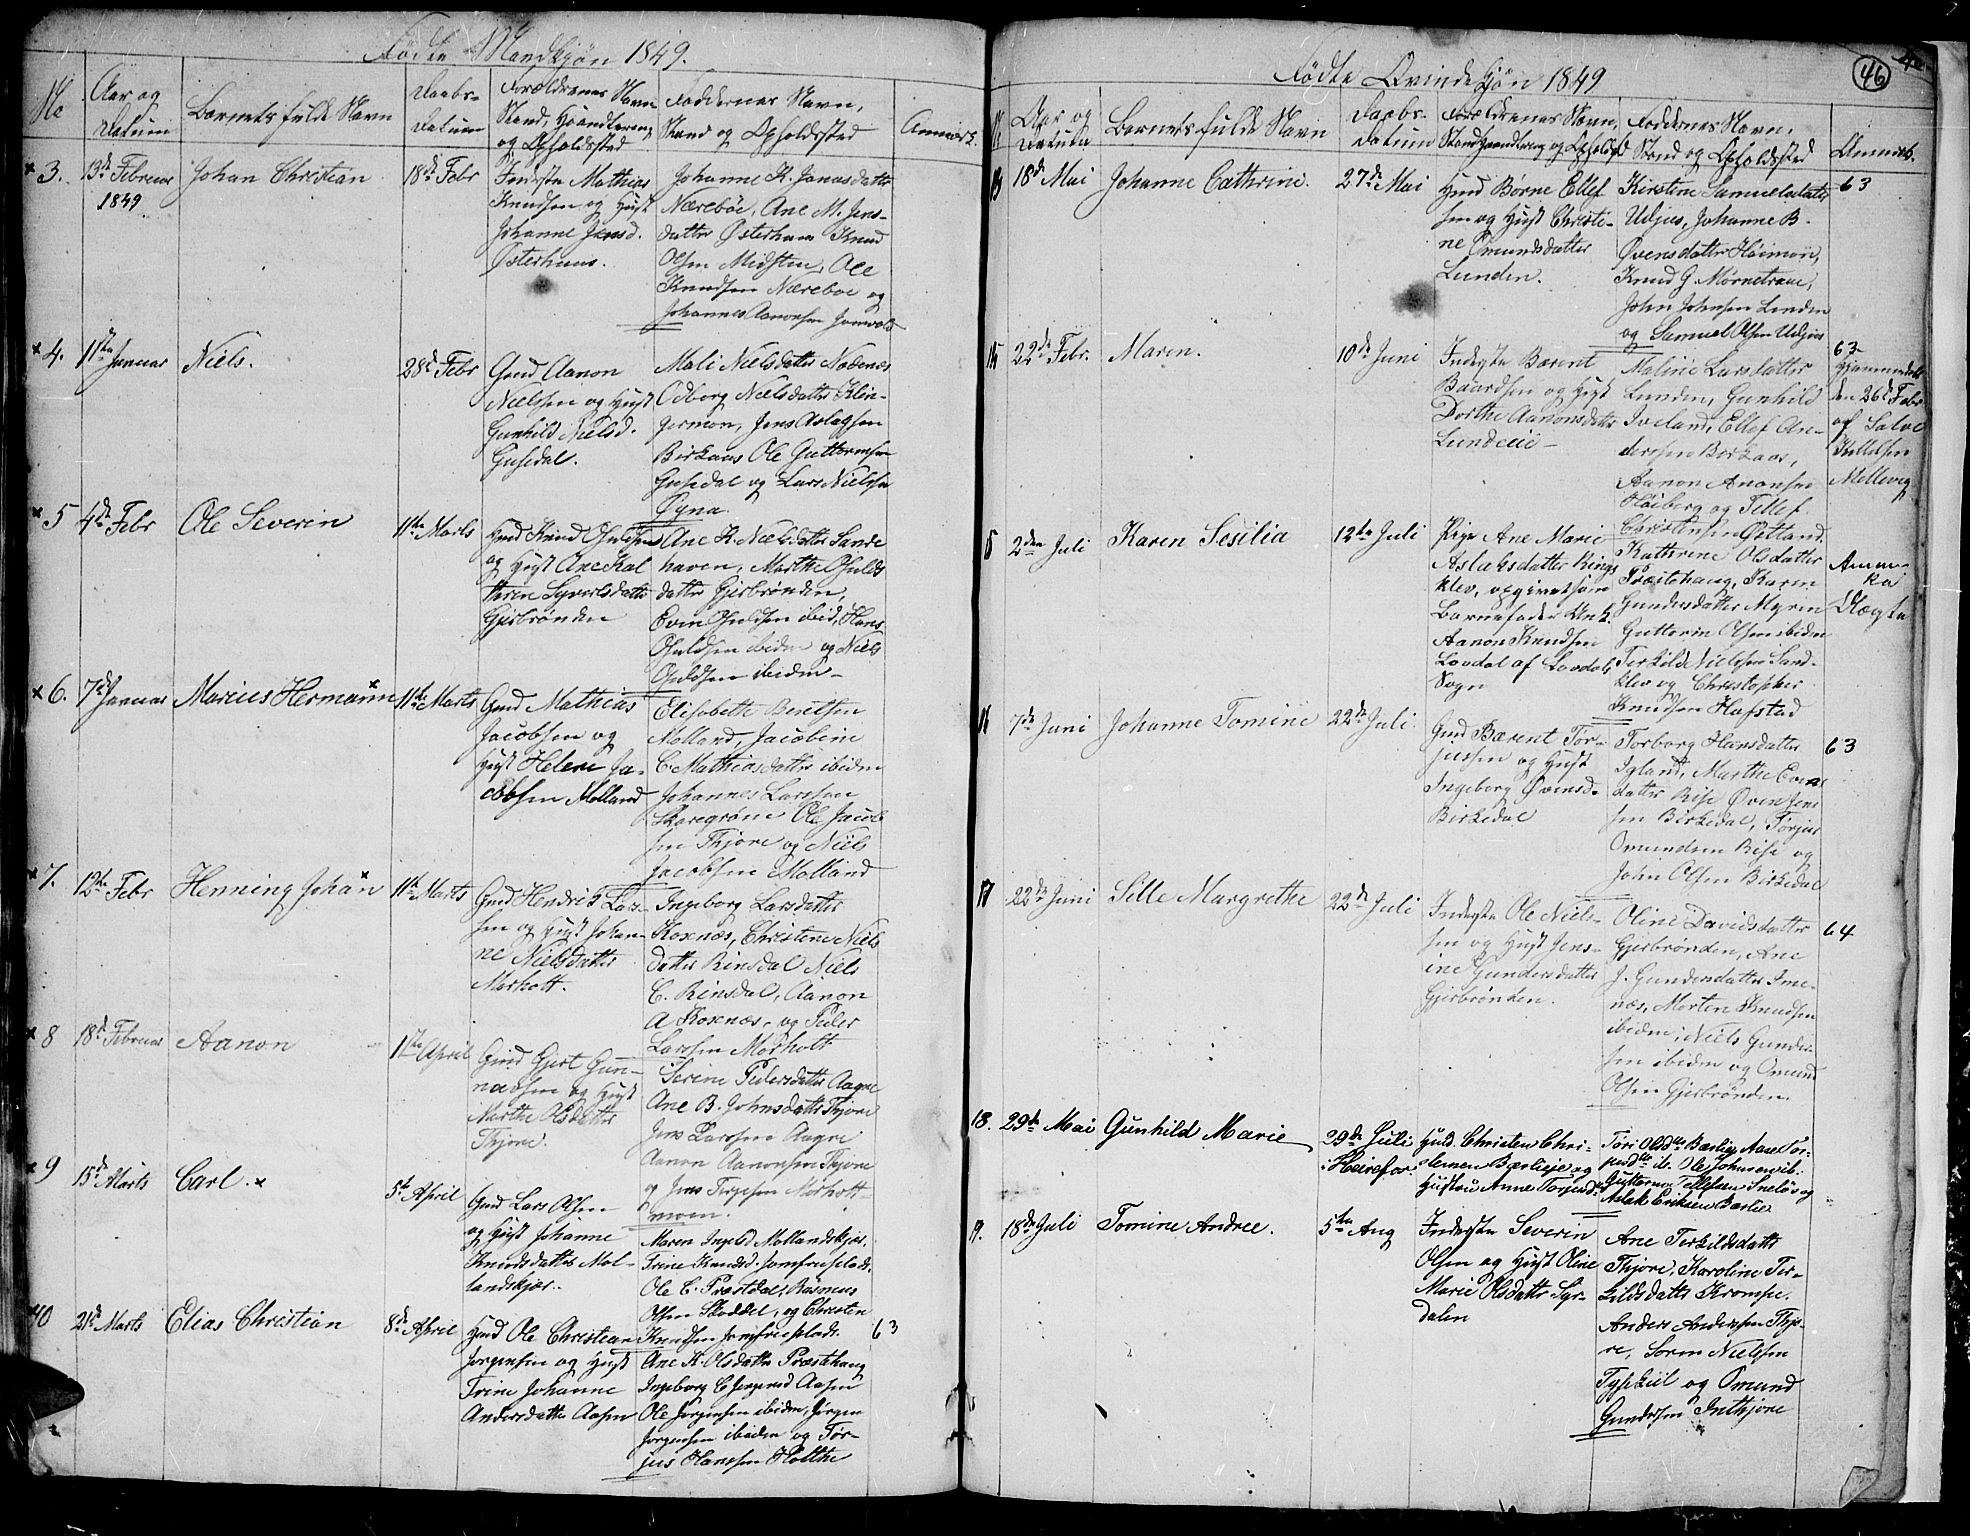 Fødte Mandkjøn 1849.
No
Aar og
Datum
Barnets fulde Navn
Daabs-
Datum
Forældrenes Navn
Stand, Haandtering
og Opholdssted
Faddernes Navn,
Stand og Opholdssted
Anmærk.
3.
13de Februar
1849
Johan Christian
18de Febr
Inderste Mathias
Knudsen og Hust
Johanne Jensd.
Østerhuus.
Johanne K. Jonasdatter
Nærebøe, Ane M. Jens-
datter Østerhuus Knud
Olsen Midsten, Ole
Knudsen Nærebøe og
Johannes Aanonsen
4.
11te Januar
Niels.
28de Febr
Gmd Aanon
Nielsen og Hust
Gunhild Nielsd.
Gusedal.
Mali Nielsdatter
Odborg Nielsdatter Klin-
germon, Jens Aslagsen
Birkaas Ole Guttormsen
Gusedal og Lars Nielsen
Øyna.
5
4de Febr
Ole Severin
11te Marts
Hmd Knud
og Hust Ane Kat
thrine Syvertsdatter
Gjerbrønden
Ane K. Nielsdatter Sande
haven, Marthe
datter Gjerbrønden,
Even ibid, Hans
ibidm og Niels
ibidm
6.
7de Januar
Marius Hermann
11te Marts
Gmd Mathias
Jacobsen og
Hust Helene Ja-
cobsen Molland
Elisabeth Berntsen
Molland, Jacobine
C. Mathiasdatter ibidm
Johannes Larssen
Skaregrøm Ole Jacob
sen Thjore og Niels
Jacobsen Molland
7.
12te Febr
Henning Johan
11te Marts
Gmd Hendrik Lar-
sen og Hust Johan-
ne Nielsdatter
Morholt.
Ingeborg Larsdatter
Roxenæs, Christine Niels
datter Rinsdal Niels
C. Rinsdal, Aanon
A Roxenæs, og Peder
Larssen Morholt
8
18de Februar
Aanon
1ste April
Gmd Gjert Gun-
Hust
Marthe Olsdatter
Thjore.
Serine Pedersdatter Aagre
Ane B. Johnsdatter Thjore
Jens Larssen Aagre
Aanon Aanonsen Thjore
og Jens Terjesen Morholt-
moen
9
15de Marts
Carl.
5te April
Gmd Lars Olsen
og Hust Johanne
Knudsdatter Mol-
landskjær.
Maren Ingebd Mollandskjær.
Trine Knudsd. Jomfrueplads.
Ole C. Præstdal, Rasmus
Olsen Skoddel, og Christen
Knudsen Jomfrueplads.
10
21de Marts
Elias Christian
8de April
Hmd Ole Christian
Jørgensen og Hust
Trine Johanne
Andersdatter Aasen
Ane K. Olsdatter Præstehaug
Ingeborg C Jørgensd Aasen
Ole Jørgensen ibidm, Jørgen
Jørgensen ibidm og Tør-
jus Hanssen Holthe
63
Fødte Qvindekjøn 1849
46
Aar og
Datum
Barnets fulde Navn
Daabs-
Datum
Forældrenes Navn,
Stand Haandtering og Opholdsd
Faddernes Navn,
Stand og Opholdssted
Anmærk.
13
18de Mai
Johanne Cathrine.
27de Mai
Hmd Børne Ellef
sen og Hust Christi-
ne Omundsdatter
Lunden.
Kirstine Samuelsdatter
Udjus, Johanne B.
Øvensdatter Heimon,
Knud G. Mørnetræe,
John Johnsen Lunden
og Samuel Olsen Udjus
63
14
22de Febr.
Maren.
10de Juni
Inderste Bærent
Baardsen og Hust
Dorthe Aanonsdatter
Lundeiie
Maline Larsdatter
Lunden, Gunhild
Iveland, Ellef An-
derssen Birkaas,
Aanon Anonsen
Høiberg og Tellef
Christensen Østland.
63
Hjemmedøbt
den 26de Febr
af Salve
Kittelsen
Mollevig
15
2den Juli
Karen Sesilia
12te Juli
Pige Ane Marie
Aslaksdatter Rings
klev, opgivet som
Barnefader Unk.
Aanon Knudsen
Lovdal af Lovdals
Sogn
Kathrine Olsdatter
Præstehaug, Karen
Gundersdatter Myren
Guttorm Olsen ibidm
Terkild Nielsen Sand-
klev og Christopher
Knudsen Hafsted
Amm-
ka
Slægte
16
7de Juni
Johanne Tomine
22de Juli
Gmd Bærent Tor-
jussen og Hust
Ingeborg Øvensd.
Birkedal
Torborg Hansdatter
Igland, Marthe Evens
datter Bise Øven Jens
sen Birkedal, Tørjus
Omundsen Bise og
John Olsen Birkedal
63
17
22de Juni
Sille Margrethe
22de Juli
Inderste Ole Niel-
sen og Hust Jens-
ine Gundersdatter
Gjerbrønden.
Oline Davidsdatter
Gjerbrønden, Ane
J. Gundersdatter Ime-
næs, Morten Knudsen
ibidm, Niels Gunder-
sen ibidm og Omund
Olsen Gjerbrønden.
64
18.
29de Mai
Gunhild Marie
29de Juli
i Heirefos.
Huld. Christen Chri-
stensen Bærlieje og
Hustru Anne Torjusd.
Tari Olsdtr Bærlieje Aase Tor-
jusdtr ib. Ole Johnsen ib.
Guttorm Tellefsen Sneløs og
Aslak Eriksen Bærlie
19.
18de Juli
Tomine Andree.
5te Aug
Inderste Severin
Olsen og Hust Oline
Marie Olsdatter Syr-
dalen
Ane Terkildsdatter
Thjore, Karoline Ter-
kildsdatter Krompe.
Anders Anderssen Thjo-
re, Søren Nielsen
Tyskiil og Omund
Gundersen Inthjore